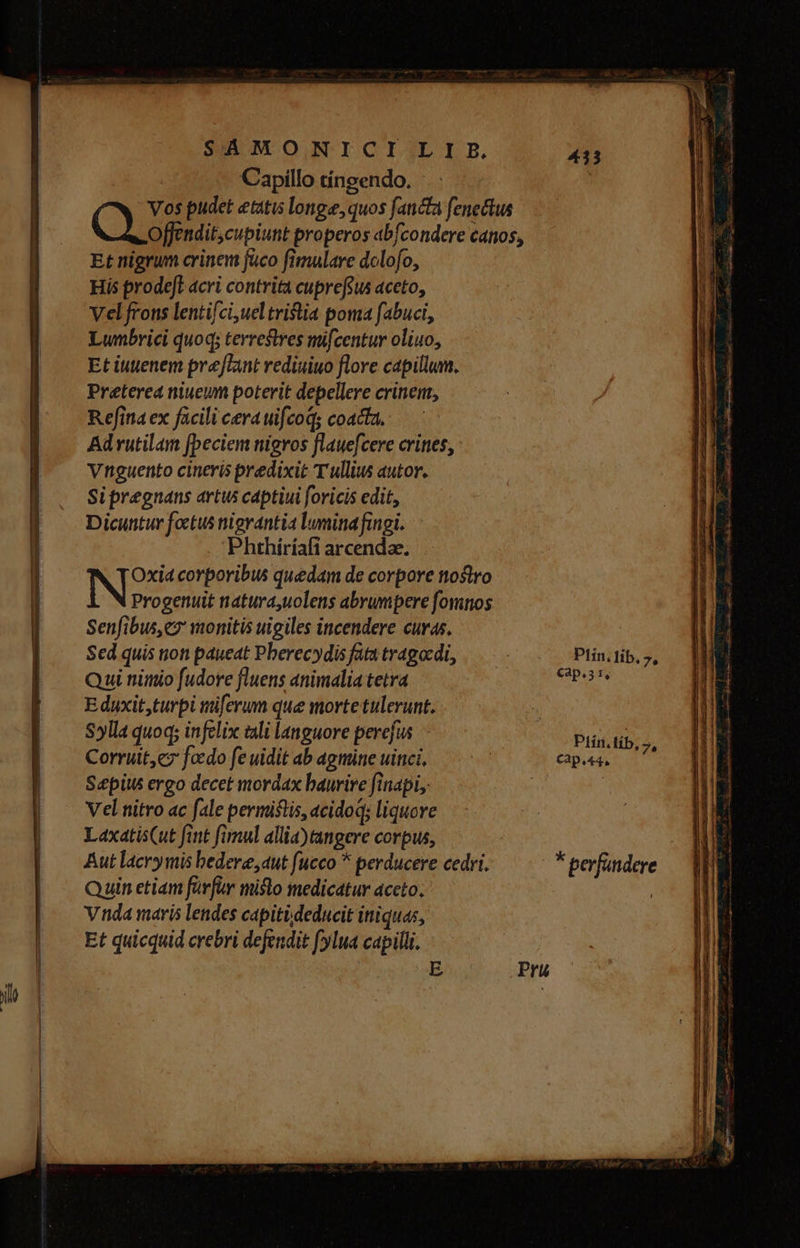 SAMONICI LIB. 433
Capillo tingendo.
QVos pudet ætatis longæ, quos sancta senectus
Offendit, cupiunt properos abscondere canos,
Et nigrum crinem fuco simulare doloso,
His prodest acri contrita cupressus aceto,
Vel frons lentisci, uel tristia poma sabuci,
Lumbrici quoq; terrestres miscentur oliuo,
Et iuuenem præstant rediuiuo flore capillum.
Præterea niueum poterit depellere crinem,
Resina ex facili cæra uiscoq́; coacta.
Ad rutilam speciem nigros flauescere crines,
Vnguento cineris prædixit Tullius autor.
Si prægnans artus captiui soricis edit,
Dicuntur fœtus nigrantia lumina fingi.
Phthiriasi arcendæ.
NOxia corporibus quædam de corpore nostro
Progenuit natura, uolens abrumpere somnos
Sensibus, & monitis uigiles incendere curas.
Sed quis non paueat Pherecydis fata tragœdi, Plin. lib. 7,
Qui nimio sudore fluens animalia tetra cap.31,
Eduxit, turpi miserum quæ morte tulerunt.
Sylla quoq; infelix tali languore peresus Plin. lib, 7,
Corruit, & fœdo se uidit ab agmine uinci. cap.44,
Sæpius ergo decet mordax haurire sinapi,
Vel nitro ac sale permistis, acidoq́; liquore
Laxatis(ut sint simul allia)tangere corpus,
Aut lacrymis hederæ, aut succo * perducere cedri. * perfundere
Quin etiam furfur misto medicatur aceto.
Vnda maris lendes capiti deducit iniquas,
Et quicquid crebri defendit sylua capilli.
E Pru